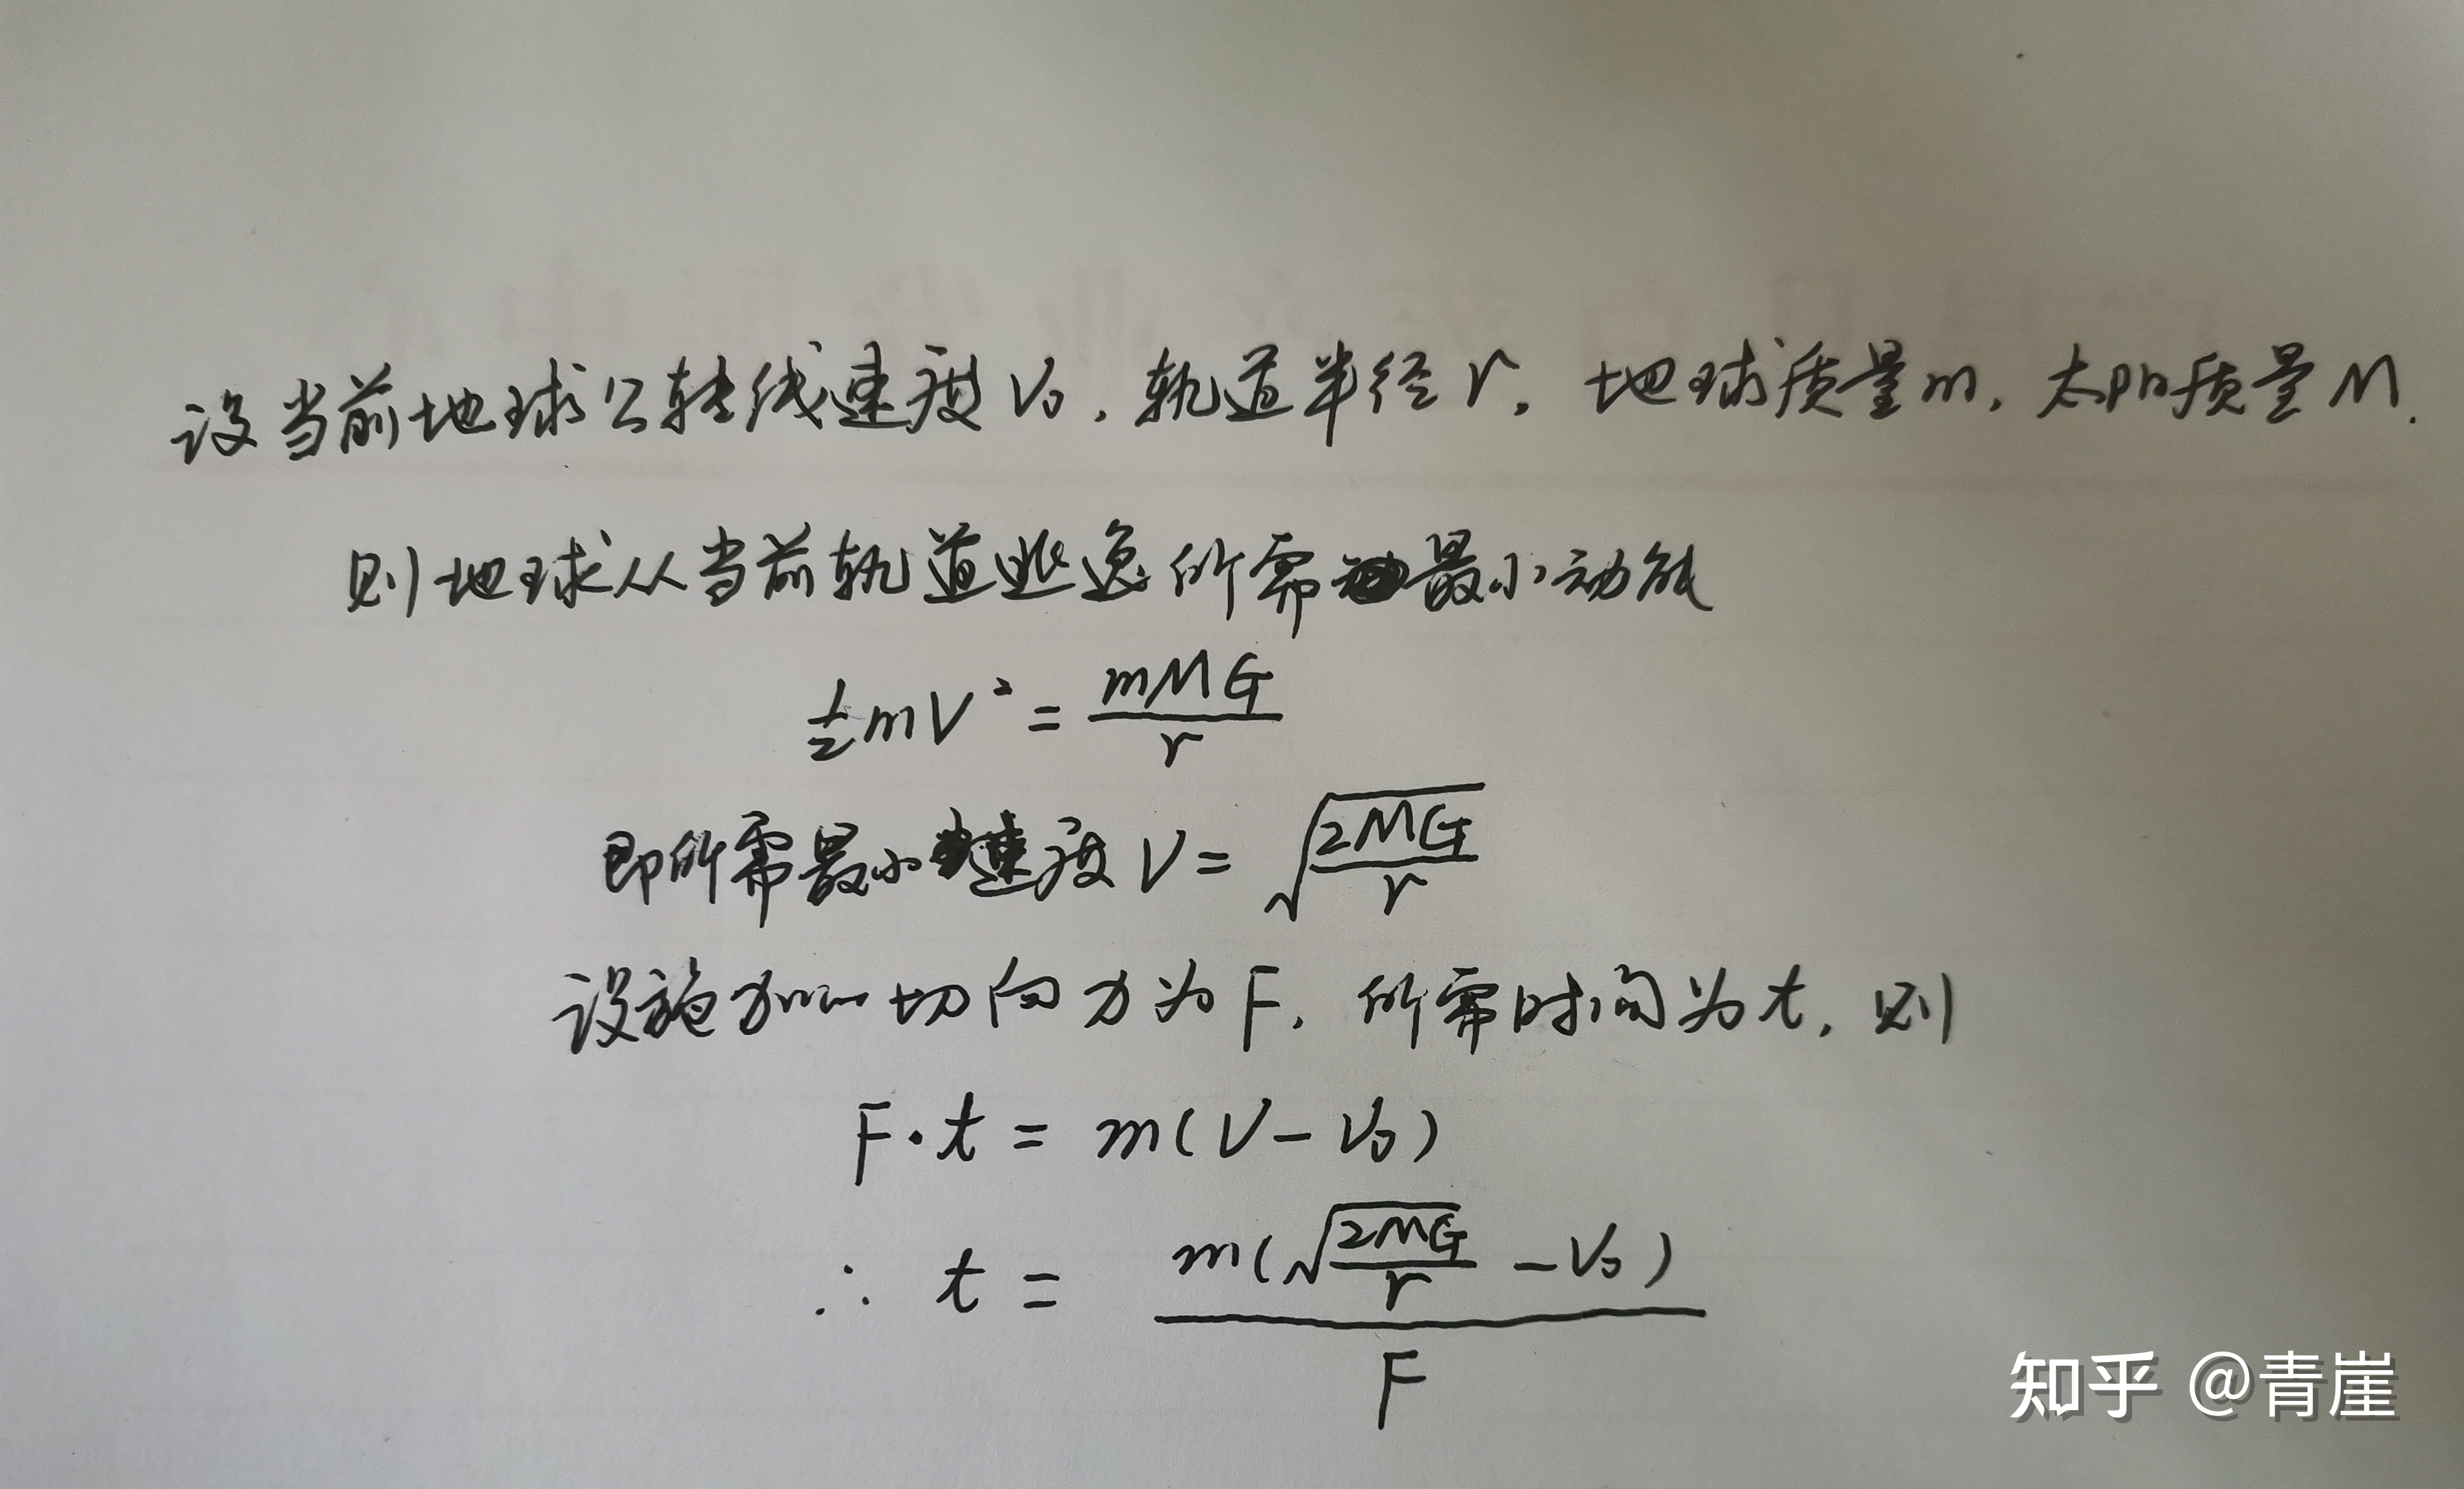 设当前地球公转线速度V₀,轨道半径r,地球质量m,太阳质量M.
则地球从当前轨道逃逸所需最小动能
½mV²=mMG/r
即所需最小速度V=√(2MG/r)
设施加切向力为F,所需时间为t,则
F·t=m(V-V₀)
∴ t=m(√(2MG/r)-V₀)/F
知乎 @青崖